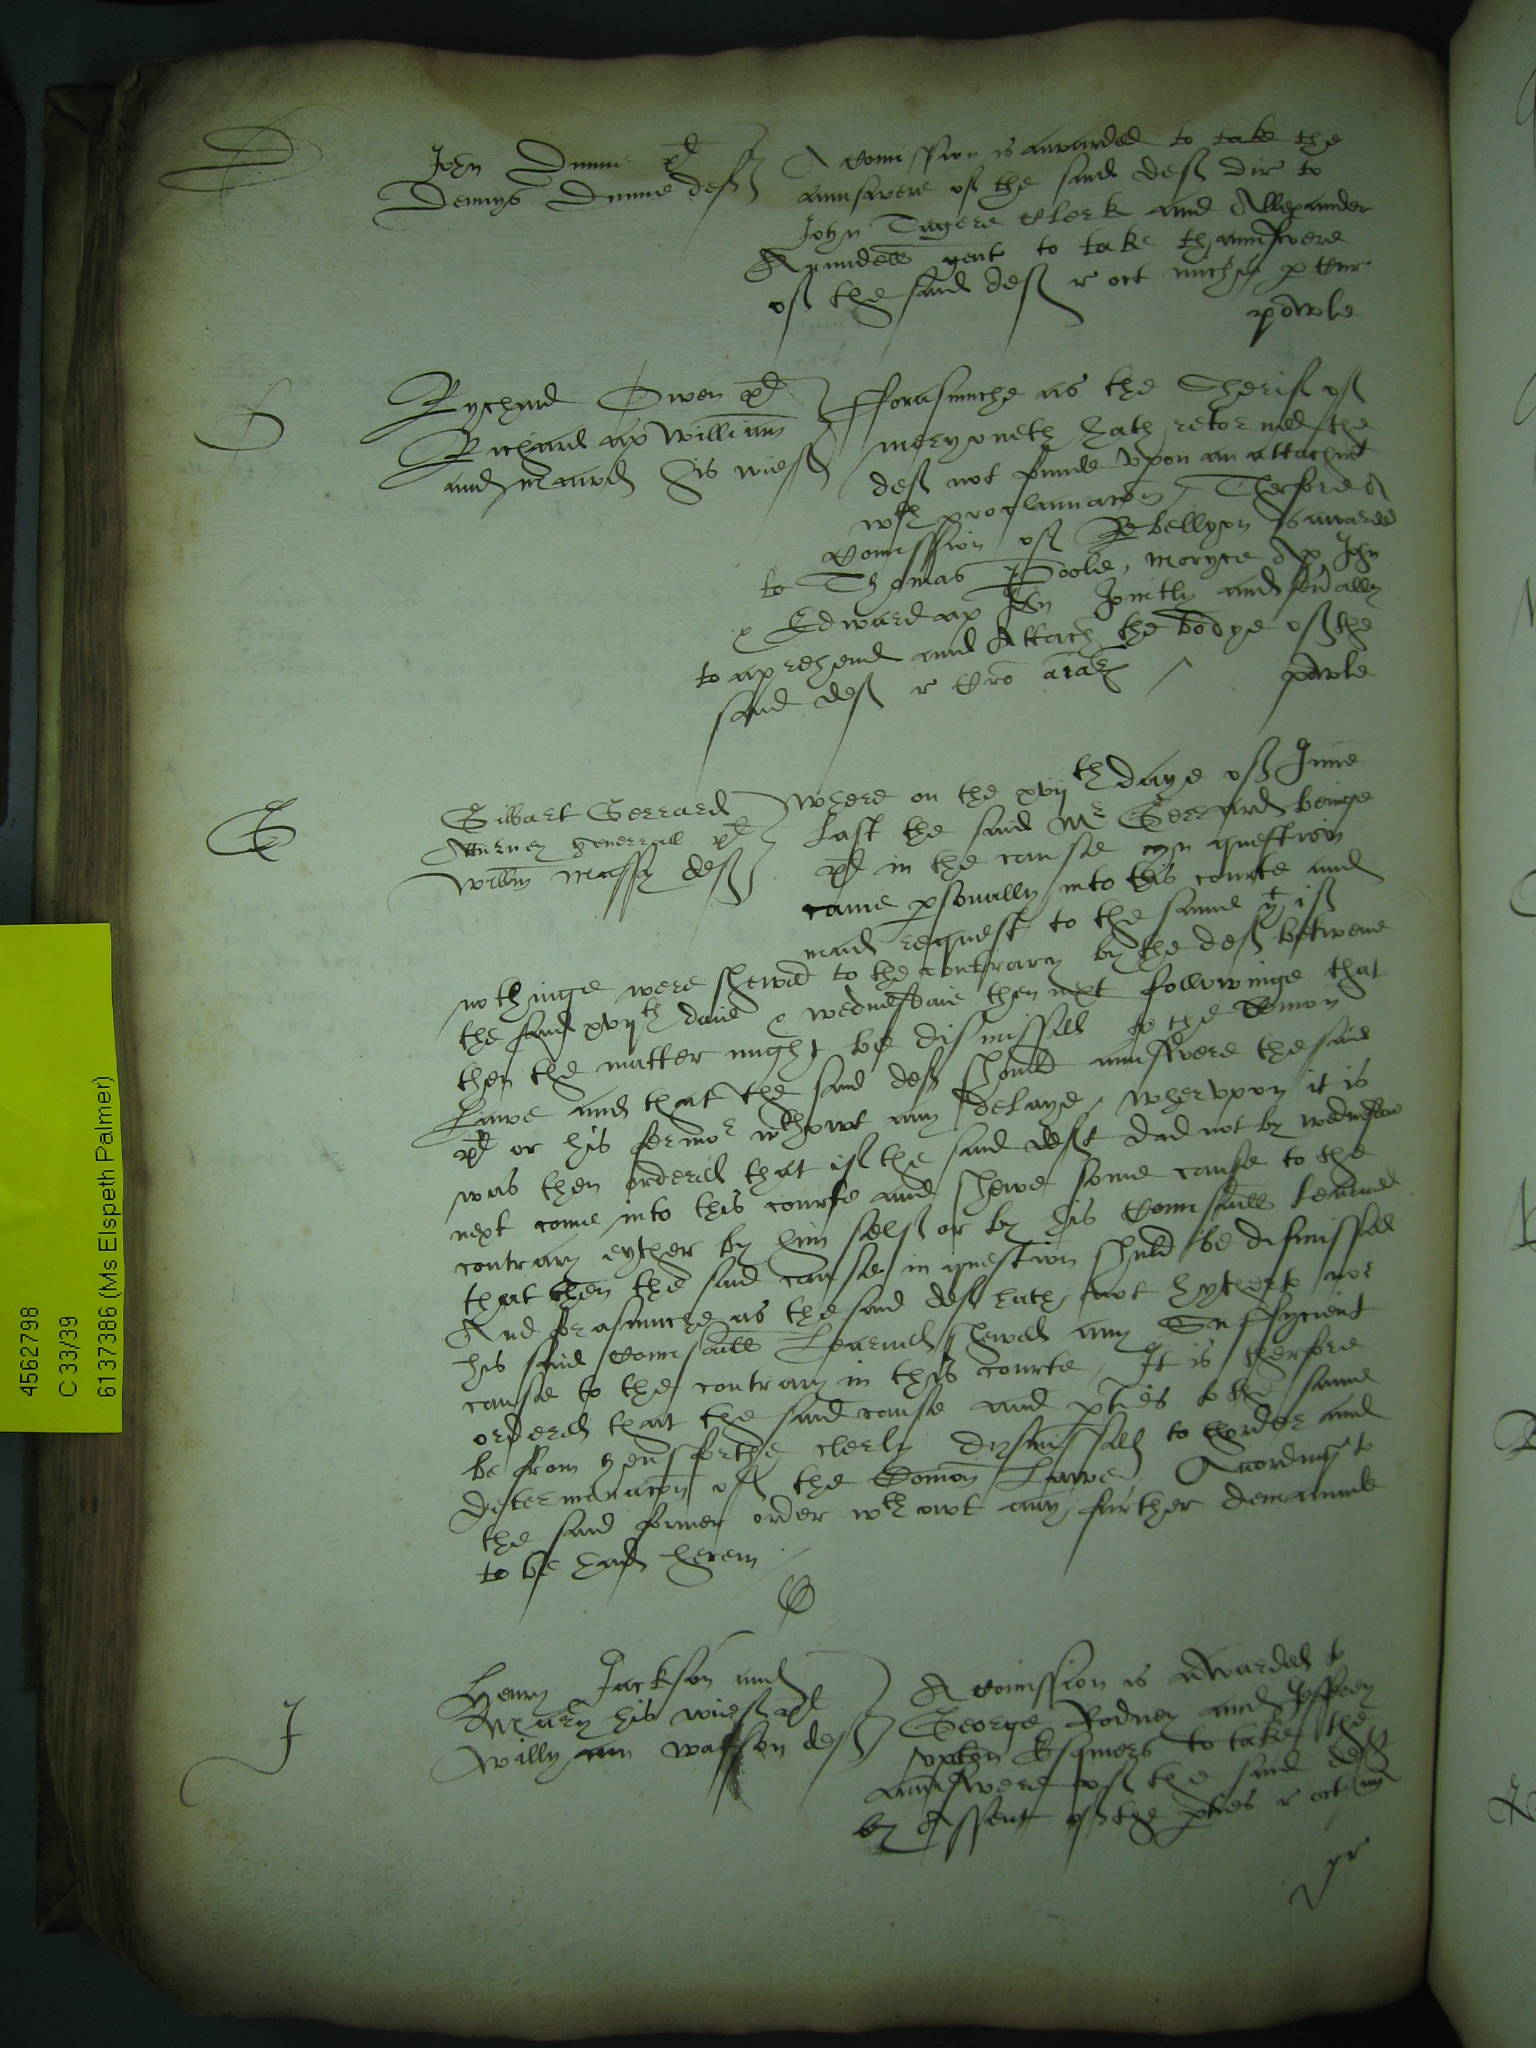 D
John Dunne pl
Dennys Dunne deff
A Comission is awarded to take the
aunswere off the said deff dir to
John Tagere Clerk and Allexander
Arundell gent to take thaunswere
off the said deff r oct mich p Cur
powle
O
Rychard Owen pl
Richard ap William
and Maud his wieff
fforasmuche as the Sherif off
meryoneth hath retorned the
deff not funde vpon an attachmt
wth proclamacon / Therfore A
Comission off Rebellyon is awarded
to Thomas Poole, moryce Ap John
& Edward ap John Joyntly and seuallly
to aprehend and Attach the bodye off the
said deff r Cro aiar /
powle
G
Gilbart Gerrard
Atturney generall pl
Willm Massy deff
where on the xvijth daye off June
last the said Mr Gerrard beinge
pl in the cause yn question
came psonally into this courte and
mad request to the same yt iff
nothinge were shewed to the contrary by the deff betwene
the said xvijth daie & wednesdaie then next followinge that
then the matter might be dismissed to the Comon
Lawe and that the said deff should aunswere the said
pl or his fermor wthowt any delaye, wherVpon it is
was then ordered that iff the said deff did not by wednesdaie
next come into this courte and shewe some cause to the
contrary eyther by him selff or by his Counsaill learned
that then the said cause in question shuld be dismissed
And forasmuche as the said deff hath not hytherto nor
his said Counsaill Learned shewed any Suffycient
cause to the contrary in this courte, It is therfore
ordered that the said cause and pties to the same
be from hensforthe clerly dysmissed to thorder and
determanacon off the Comon Lawe, Acordinge to
the said former order wthowt any further demaunde
to be had herein /
J
Henry Jackson and
Mary his wieff pl
Willyam Watson deff
A Comission is awarded to
George Rodney and Jeffrey
vpton Esquiers to take the
aunswere off the said deff
by Assent off the pties r oct mi
4562798
C 33/39
6137386 (Ms Elspeth Palmer)